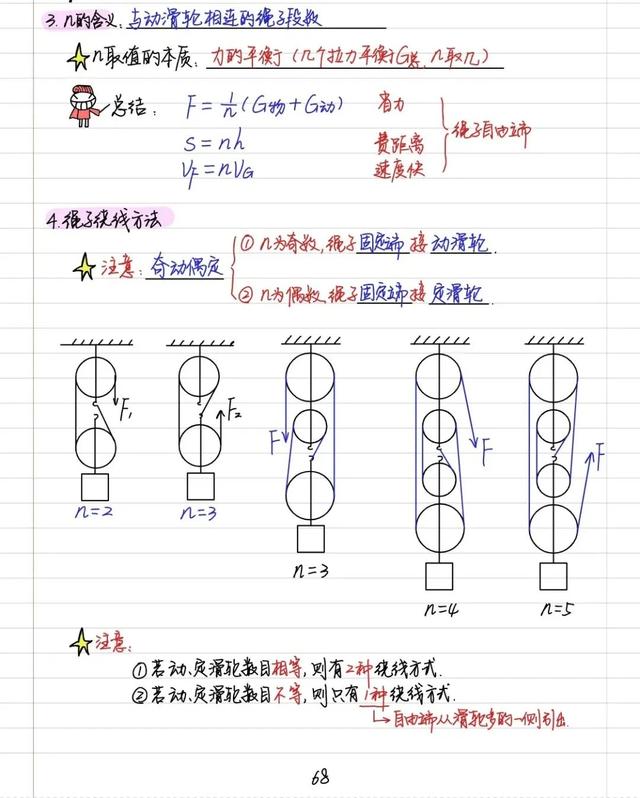 3. n的含义: 与动滑轮相连的绳子段数
n取值的本质: 力的平衡(几个拉力平衡G总, n取几)
总结: F=1/n(G物+G动) 省力
S=nh 费距离 绳子自由端
VF=nVG 速度快
4. 绳子绕线方法
注意: 奇动偶定
① n为奇数, 绳子固定端接动滑轮.
② n为偶数, 绳子固定端接定滑轮.
F1 F2 F F F
n=2 n=3 n=3 n=4 n=5
注意:
①若动、定滑轮数目相等, 则有2种绕线方式.
②若动、定滑轮数目不等, 则只有1种绕线方式.
自由端从滑轮多的一侧引出.
68